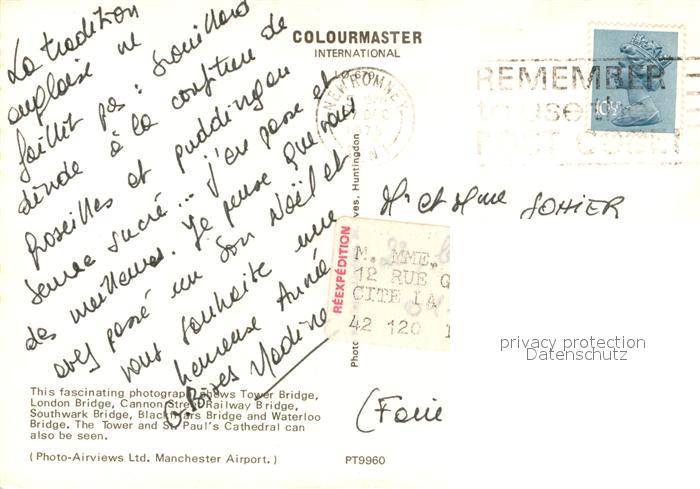 La tradition
anglaise ne
faillit pas : brouillard
dinde à la confiture de
groseilles et pudding au
sucre ... j'en passe et
des meilleures. Je pense que vous
avez passé un bon Noël et
vous souhaite une
heureuse Année
G. Bises Nadine
COLOURMASTER
INTERNATIONAL
NEW ROMNEY
REMEMBER
to use the
POST CODE
Mr et Mme SOHIER
RÉEXPÉDITION
M. MME.
12 RUE
CITE LA
42 120
Huntingdon
Photo
privacy protection
Datenschutz
This fascinating photograph shows Tower Bridge,
London Bridge, Cannon Street Railway Bridge,
Southwark Bridge, Blackfriars Bridge and Waterloo
Bridge. The Tower and St. Paul's Cathedral can
also be seen.
(Photo-Airviews Ltd. Manchester Airport.)
PT9960